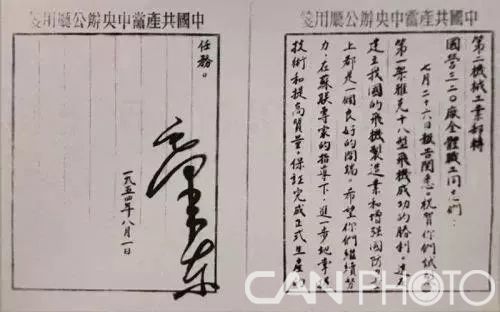 中國共產黨中央辦公廳用箋
第二機械工業部轉
國營三二〇廠全體職工同志們：
七月二十六日報告閱悉。祝賀你們試製
第一架雅克十八型飛機成功的勝利。這在
建立我國的飛機製造業和增強國防
上都是一個良好的開端。希望你們繼續努
力，在蘇聯專家的指導下，進一步地掌握
技術和提高質量，保証完成正式生產的
中國共產黨中央辦公廳用箋
任務。
毛澤東
一九五四年八月一日
CANPHOTO